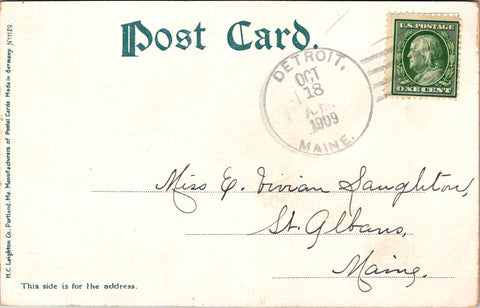 Post Card.
U.S. POSTAGE
ONE CENT
DETROIT,
OCT
18
A.M.
1909
MAINE.
Miss E. Vivian Laughton,
St. Albans,
Maine.
This side is for the address.
H.C. Leighton Co., Portland, Me. Manufacturers of Postal Cards Made in Germany N